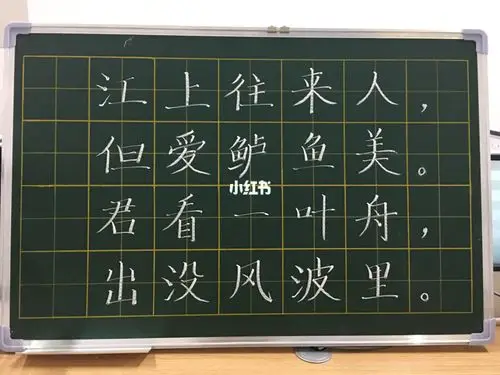 江上往来人，
但爱鲈鱼美。
小红书
君看一叶舟，
出没风波里。